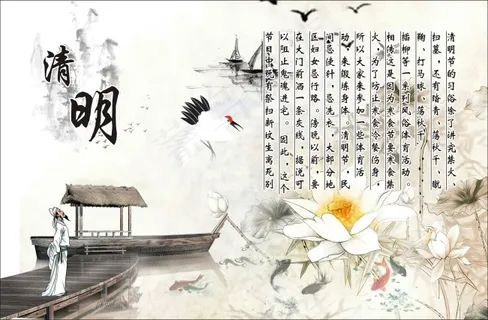 清明
清明节的习俗除了讲究禁火、
扫墓，还有踏青、荡秋千、蹴
鞠、打马球、荡秋千、
插柳等一系列风俗体育活动。
相传这是因为寒食节要寒食禁
火，为了防止寒食冷餐伤身，
所以大家来参加一些体育活
动，来锻炼身体。清明节，民
间忌使针，忌洗衣，大部分地
区妇女忌行路。傍晚以前，要
在大门前洒一条灰线，据说可
以阻止鬼魂进宅。因此，这个
节日中既有祭扫新坟生离死别